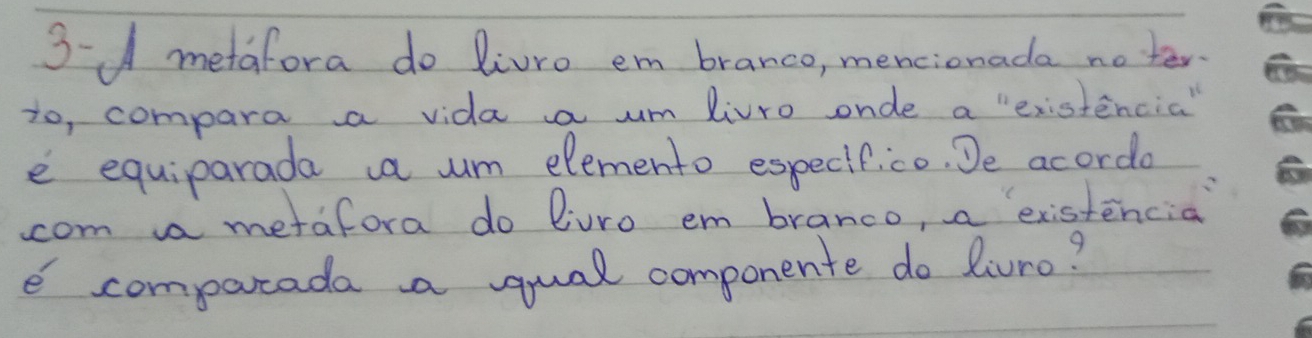 3- A metáfora do livro em branco, mencionada no tex-
to, compara a vida a um livro onde a "existência"
é equiparada a um elemento especifico. De acordo
com a metáfora do livro em branco, a "existência"
é comparada a qual componente do livro?